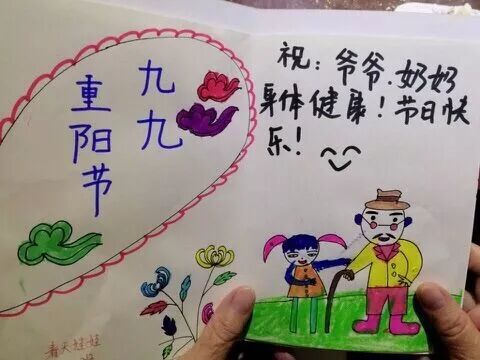 九九
重阳节
祝：爷爷.奶奶
身体健康！节日快
乐！
春天娃娃